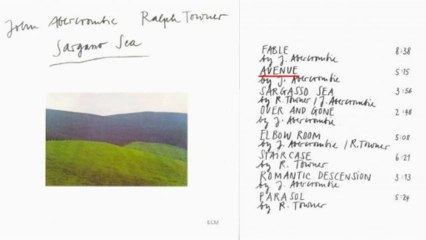 John Abercrombie Ralph Towner
Sargasso Sea
FABLE 8:38
by J. Abercrombie
AVENUE 5:25
by J. Abercrombie
SARGASSO SEA 3:56
by R. Towner / J. Abercrombie
OVER AND GONE 2:40
by J. Abercrombie
ELBOW ROOM 5:08
by J. Abercrombie / R. Towner
STAIRCASE 6:21
by R. Towner
ROMANTIC DESCENSION 3:13
by J. Abercrombie
PARASOL 5:24
by R. Towner
ECM